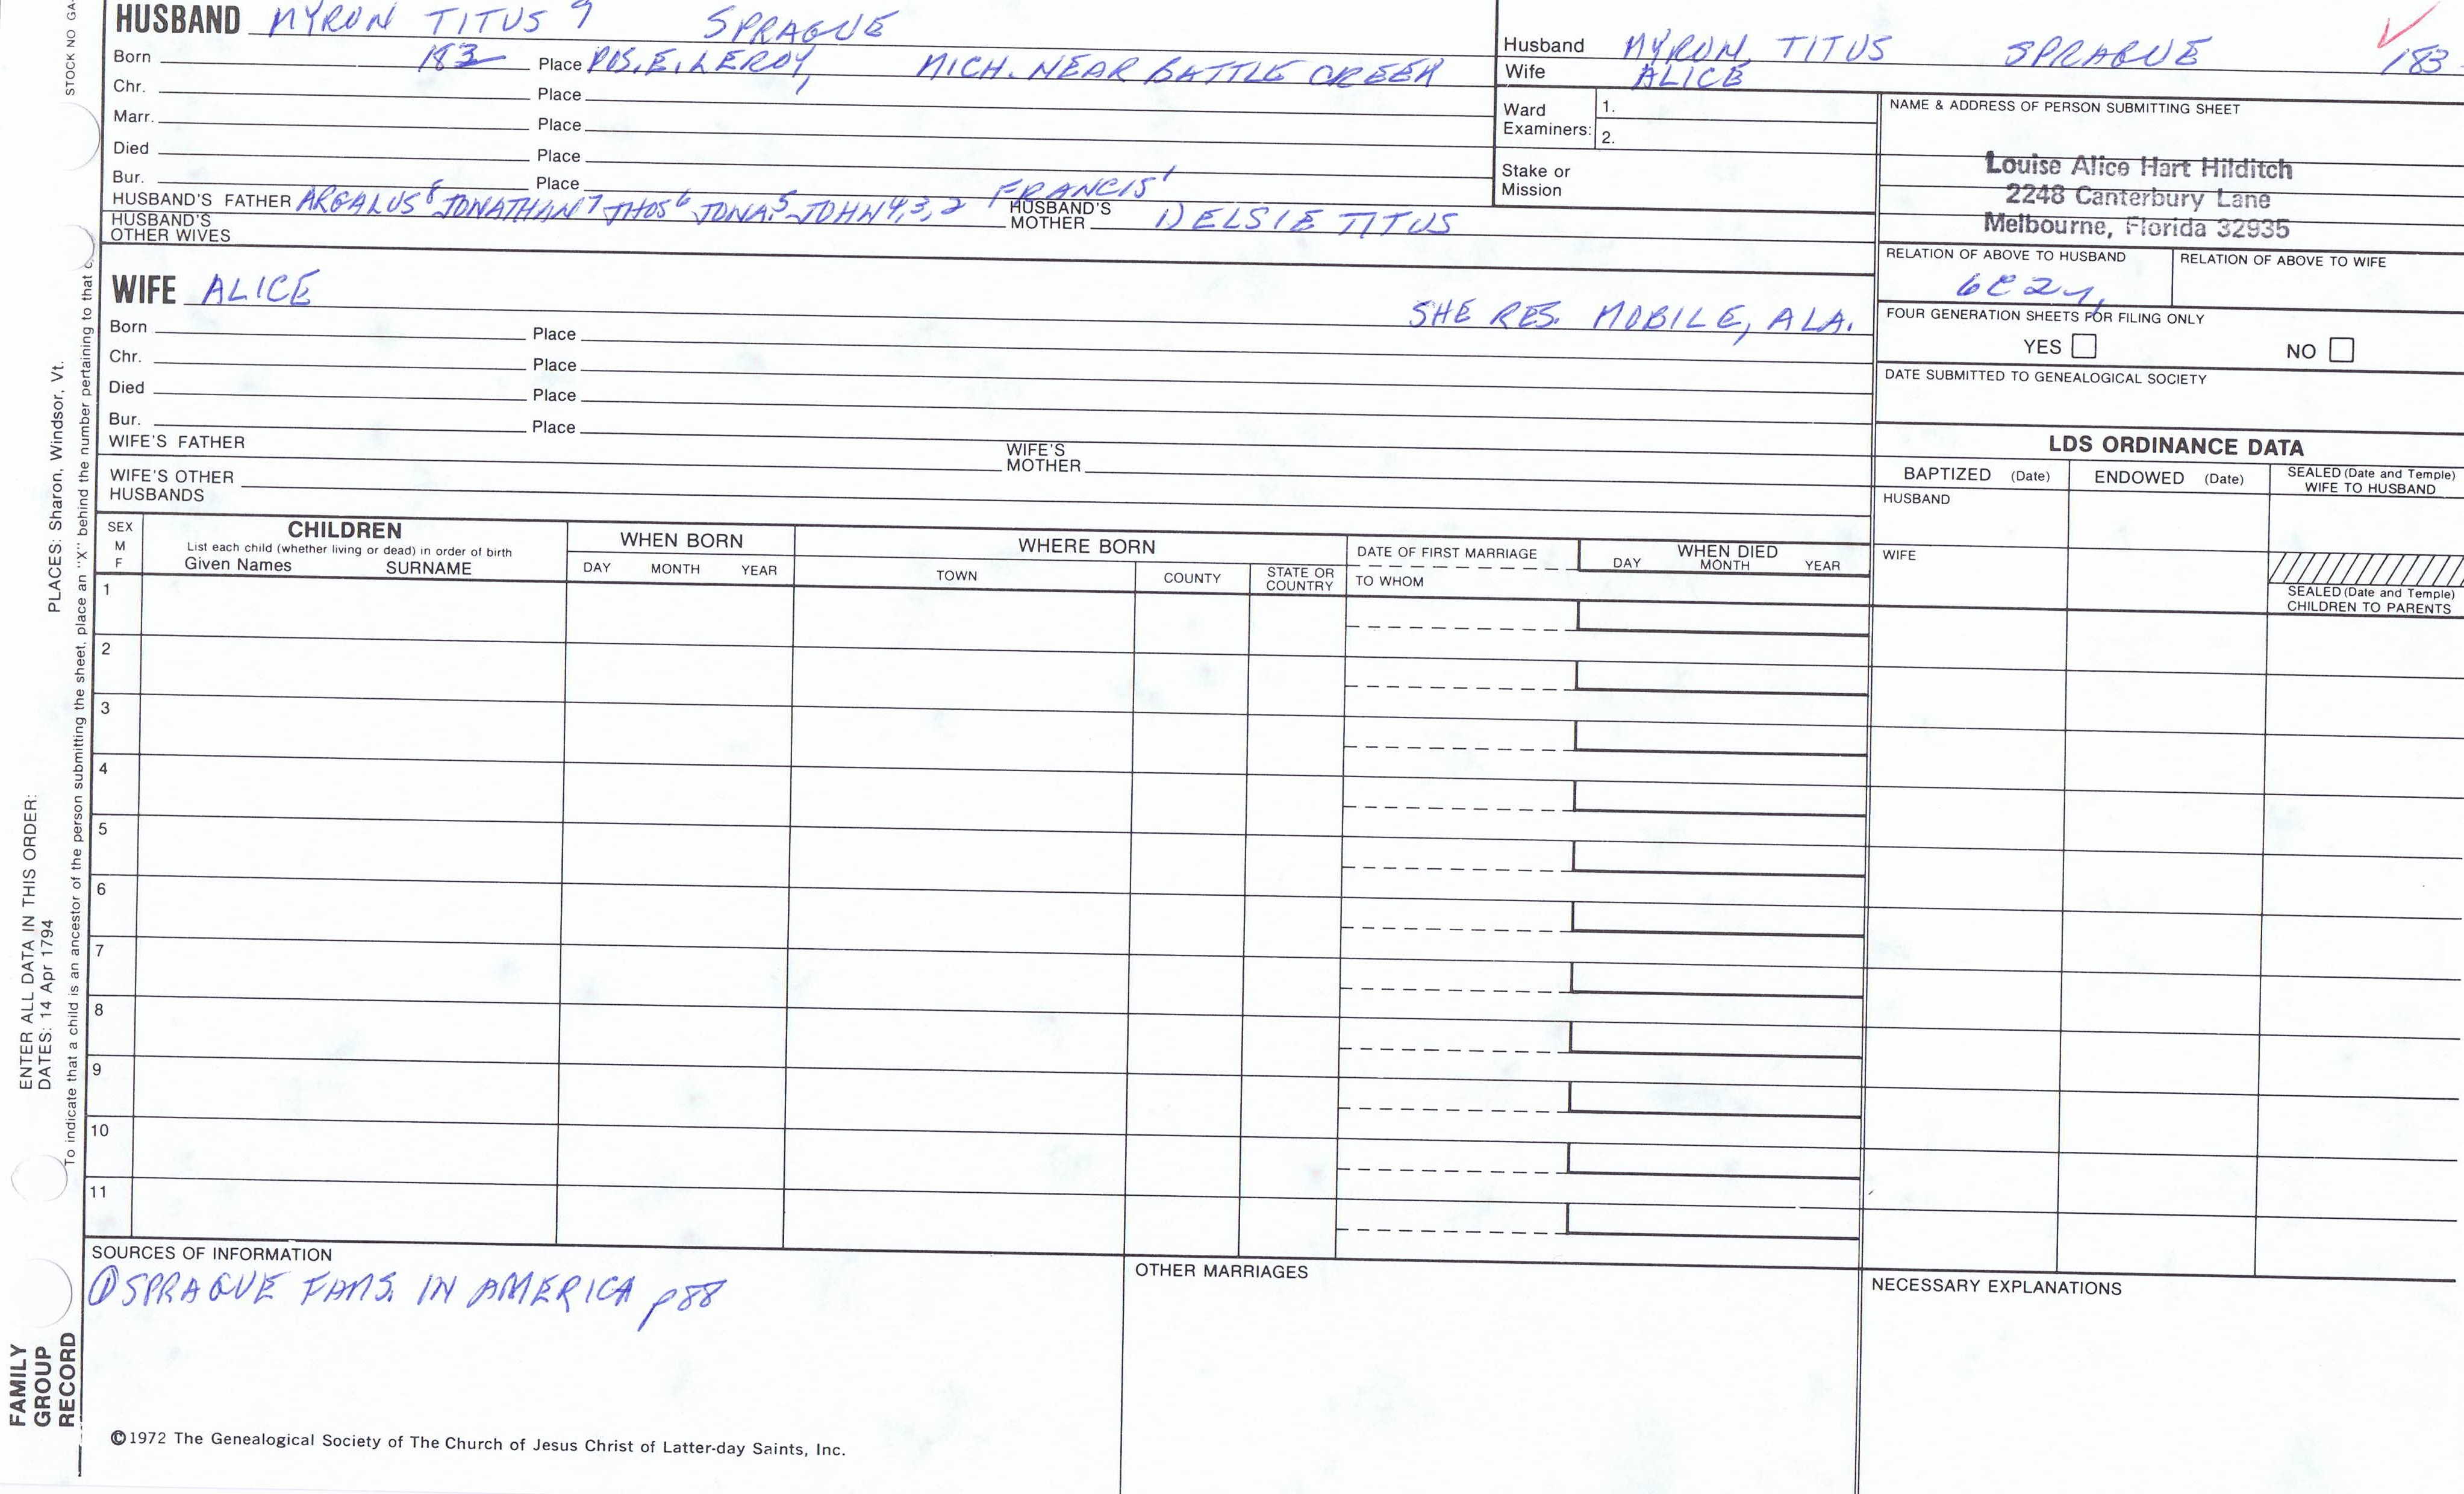 STOCK NO GA-
HUSBAND MYRON TITUS 9 SPRAGUE
Born 183- Place POS. E. LEROY, MICH. NEAR BATTLE CREEK
Chr. Place
Marr. Place
Died Place
Bur. Place
HUSBAND'S FATHER ARGALUS 8 JONATHAN 7 THOS 6 JONA. 5 JOHN 4,3,2 FRANCIS 1 HUSBAND'S MOTHER 1) ELSIE TITUS
HUSBAND'S OTHER WIVES
WIFE ALICE
SHE RES. MOBILE, ALA.
Born Place
Chr. Place
Died Place
Bur. Place
WIFE'S FATHER WIFE'S MOTHER
WIFE'S OTHER HUSBANDS
Husband MYRON TITUS SPRAGUE 183-
Wife ALICE
Ward Examiners: 1.
2.
Stake or Mission
NAME & ADDRESS OF PERSON SUBMITTING SHEET
Louise Alice Hart Hilditch
2248 Canterbury Lane
Melbourne, Florida 32935
RELATION OF ABOVE TO HUSBAND RELATION OF ABOVE TO WIFE
6C2r.
FOUR GENERATION SHEETS FOR FILING ONLY
YES NO
DATE SUBMITTED TO GENEALOGICAL SOCIETY
LDS ORDINANCE DATA
BAPTIZED (Date) ENDOWED (Date) SEALED (Date and Temple) WIFE TO HUSBAND
HUSBAND
WIFE
SEALED (Date and Temple)
CHILDREN TO PARENTS
SEX M F
CHILDREN
List each child (whether living or dead) in order of birth
Given Names SURNAME
WHEN BORN
DAY MONTH YEAR
WHERE BORN
TOWN COUNTY STATE OR COUNTRY
DATE OF FIRST MARRIAGE
TO WHOM
WHEN DIED
DAY MONTH YEAR
1
2
3
4
5
6
7
8
9
10
11
SOURCES OF INFORMATION
① SPRAGUE FAMS. IN AMERICA p88
OTHER MARRIAGES
NECESSARY EXPLANATIONS
©1972 The Genealogical Society of The Church of Jesus Christ of Latter-day Saints, Inc.
FAMILY
GROUP
RECORD
ENTER ALL DATA IN THIS ORDER:
DATES: 14 Apr 1794
PLACES: Sharon, Windsor, Vt.
To indicate that a child is an ancestor of the person submitting the sheet, place an "X" behind the number pertaining to that c